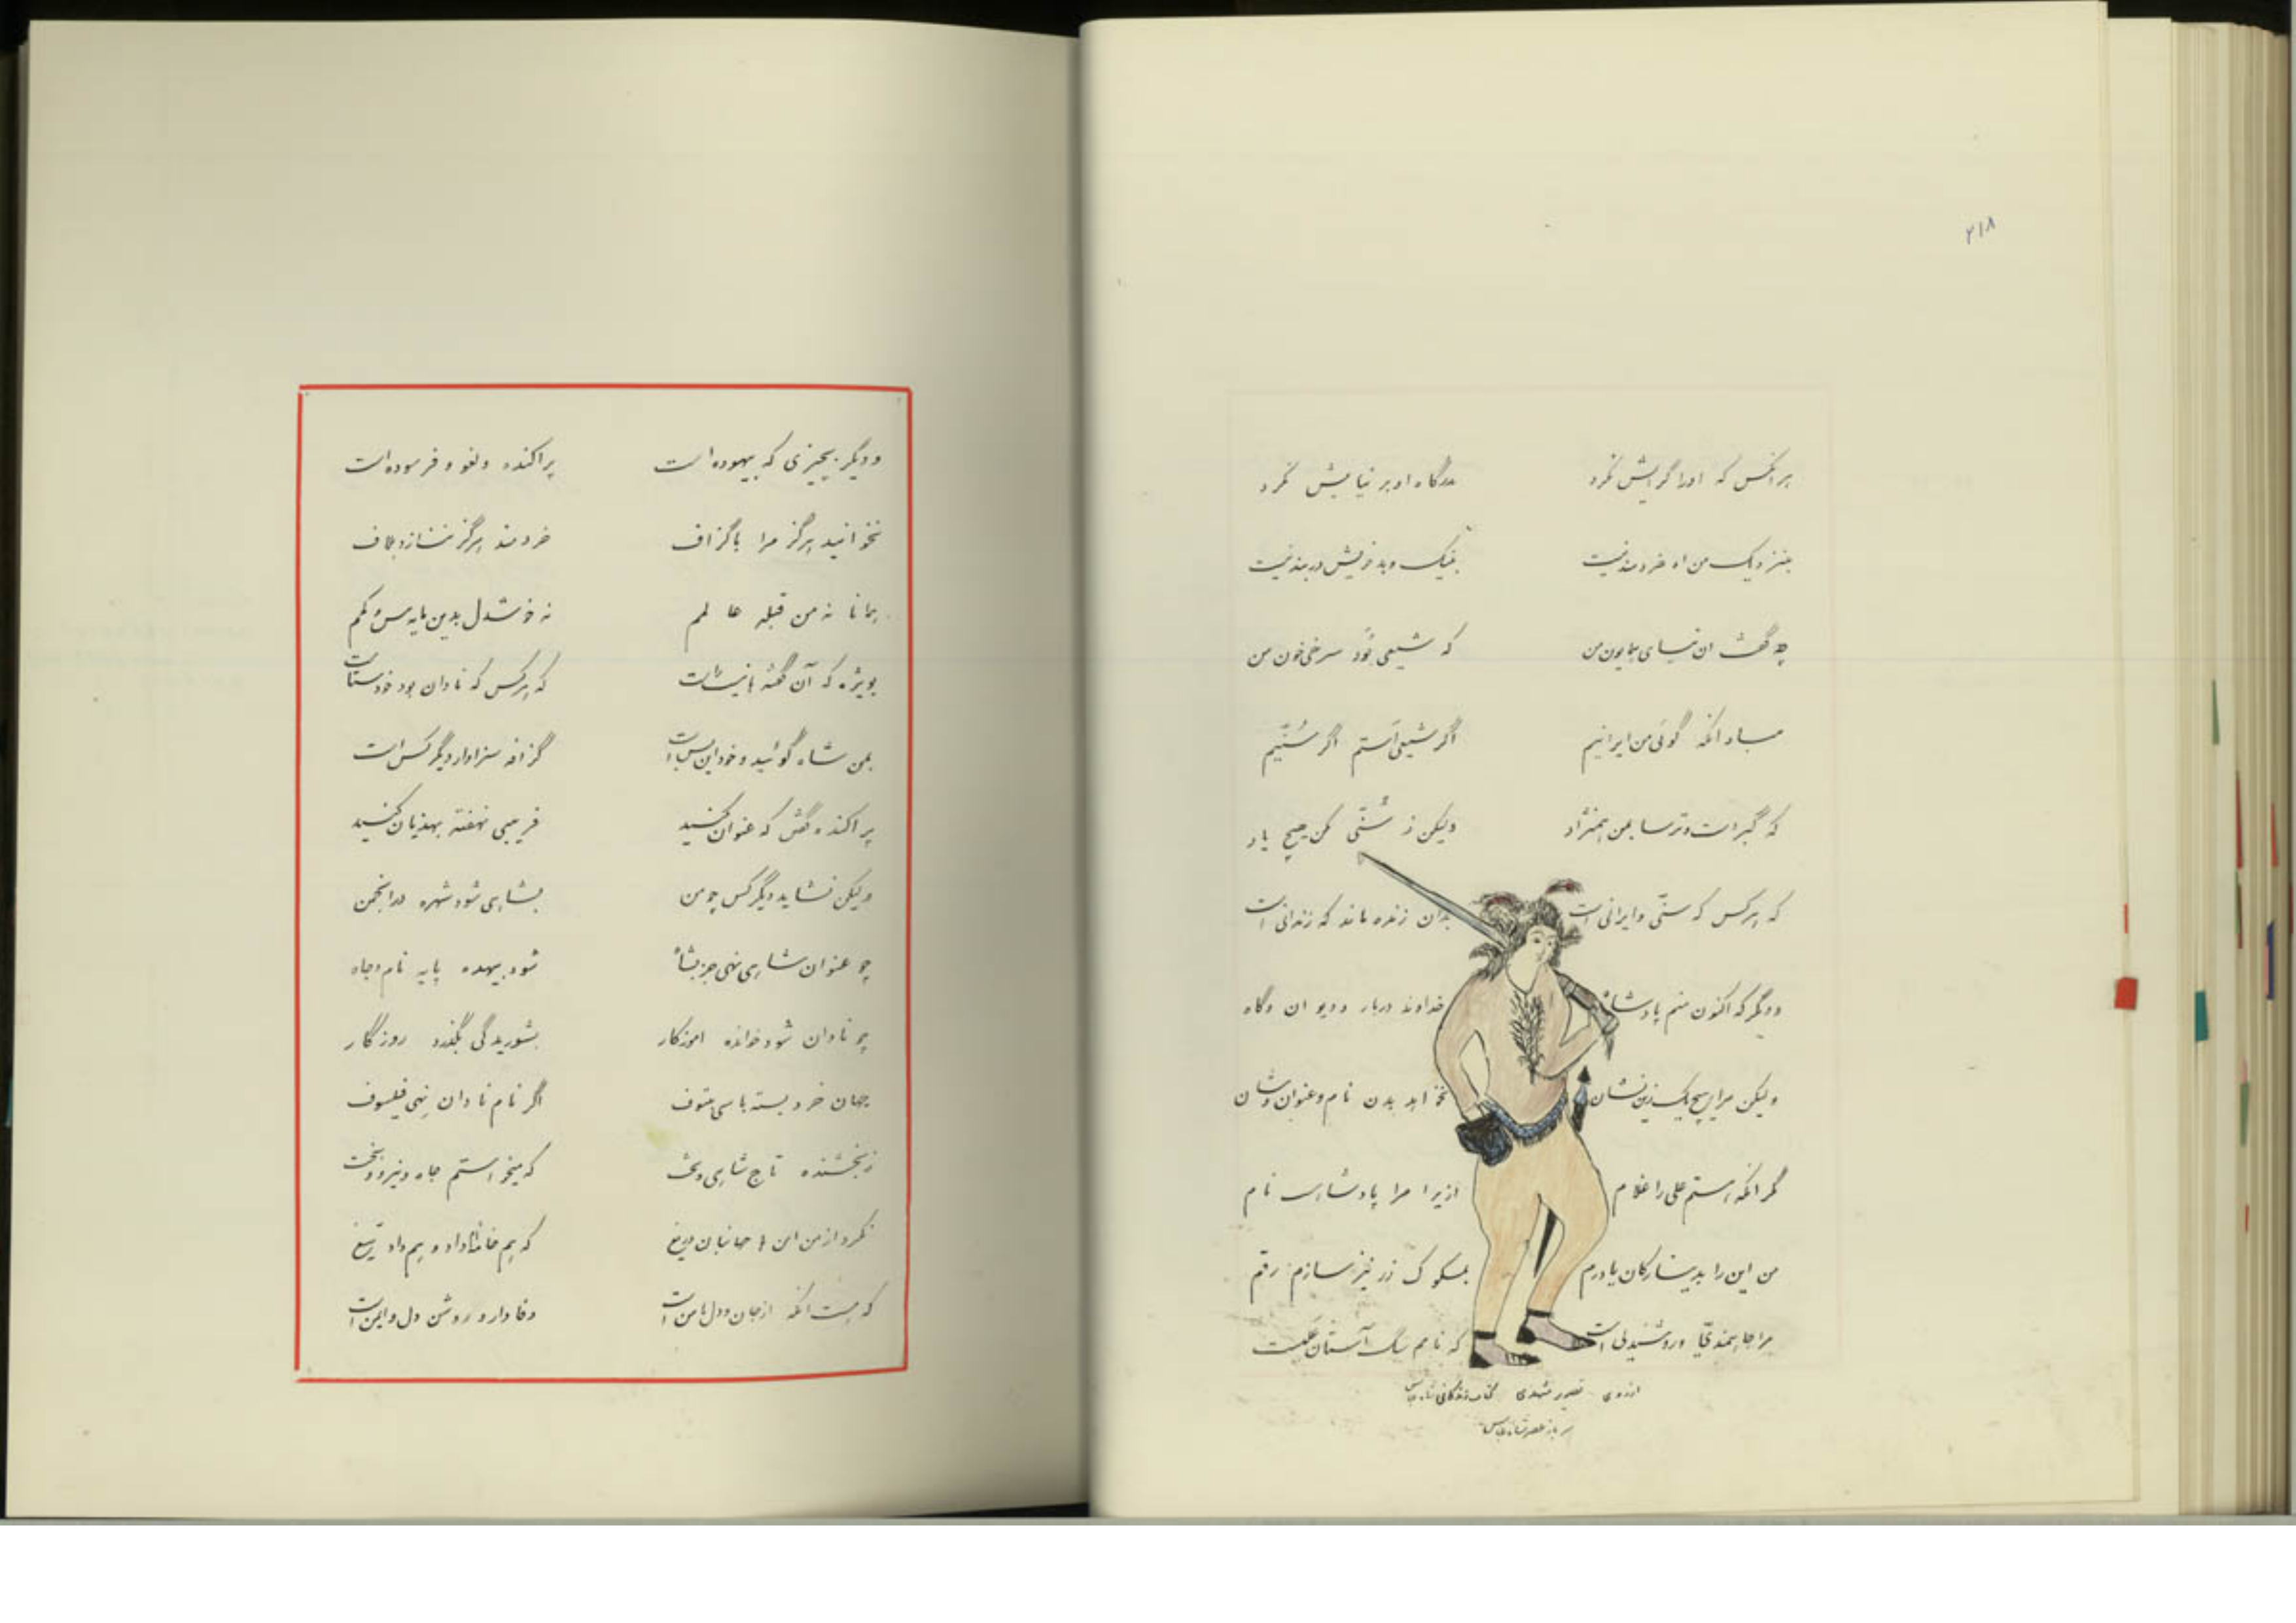 ۲۱۸
هرآنکس که او را گرایش نکرد بدرگاه او بر نیایش نکرد
بنزدیک من او خردمند نیست بنیک و بد خویش دربند نیست
چه گفت آن نیای همایون من که شیعی بُوَد سرخی خون من
مباد آنکه گوئی من ایرانیم اگر شیعی استم اگر سُنّیم
که گبر است و ترسا بمن همنژاد ولیکن ز سُنّی مکن هیچ یاد
که هرکس که سنّی و ایرانی است بدان زنده ماند که زندانی است
و دیگر که اکنون منم پادشاه خداوند دربار و دیوان و گاه
ولیکن مرا هیچیک زین نشان نخواهد بدن نام و عنوان و شان
مگر آنکه هستم علی را غلام ازیرا مرا پادشاهیست نام
من این را بدیشارکان یادرم بمسکوک زر نیز سازم رقم
مرا جاهمندی و روشندلی است که نامم سگ آستان علیست
از روی تصویر کتاب زندگانی شاه عباس
سرباز عصر شاه عباس
و دیگر بچیزی که بیهوده است پراکنده و لغو و فرسوده است
نخوانید هرگز مرا با گزاف خردمند هرگز ننازد بلاف
همانا نه من قبله عالمم نه خوشدل بدین مایه بیش و کمم
بویژه که آن گفته نیست که هرکس که نادان بود خودستاست
بمن شاه گوئید و خود این بس است گزافه سزاوار دیگر کس است
پراکنده گفتن که عنوان کنید فریبی نهفته بهذیان کنید
ولیکن نشاید دیگر کس چو من بشاهی شود شهره در انجمن
چو عنوان شاهی نهی جز بشاه شود بیهده پایه نام و جاه
چو نادان شود خوانده آموزگار بشوریدگی بگذرد روزگار
جهان خرد بسته با سی متوف اگر نام نادان نهی فیلسوف
ز بخشنده تاج شاهی و تخت که میخواستم جاه و نیرو و بخت
نکرد از من این جانبان دریغ که هم خامه‌ام داد و هم داد تیغ
که هست آنکه از جان و دل با من است وفادار و روشن دل و ایمن است